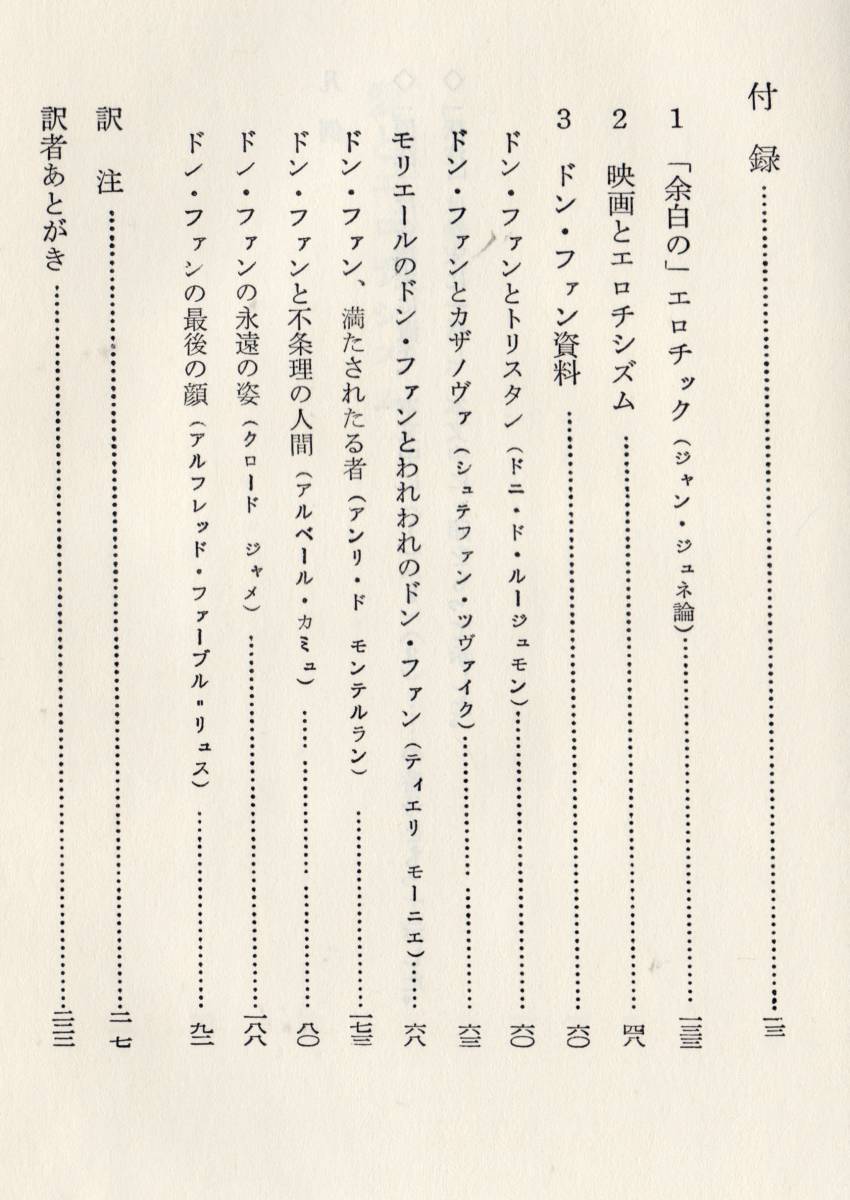 付録……一三
1 「余白の」エロチック（ジャン・ジュネ論）……一三三
2 映画とエロチシズム……四八
3 ドン・ファン資料……六〇
ドン・ファンとトリスタン（ドニ・ド・ルージュモン）……六〇
ドン・ファンとカザノヴァ（シュテファン・ツヴァイク）……六三
モリエールのドン・ファンとわれわれのドン・ファン（ティエリ モーニエ）……六八
ドン・ファン、満たされたる者（アンリ・ド モンテルラン）……一七三
ドン・ファンと不条理の人間（アルベール・カミュ）……八〇
ドン・ファンの永遠の姿（クロード ジャメ）……一八八
ドン・ファンの最後の顔（アルフレッド・ファーブル"リュス）……九二
訳注……二 七
訳者あとがき……